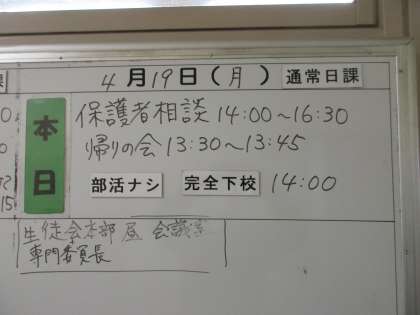 4月19日(月) 通常日課
本日
保護者相談 14:00～16:30
帰りの会 13:30～13:45
部活ナシ 完全下校 14:00
生徒会本部 昼 会議室
専門委員長
課
15